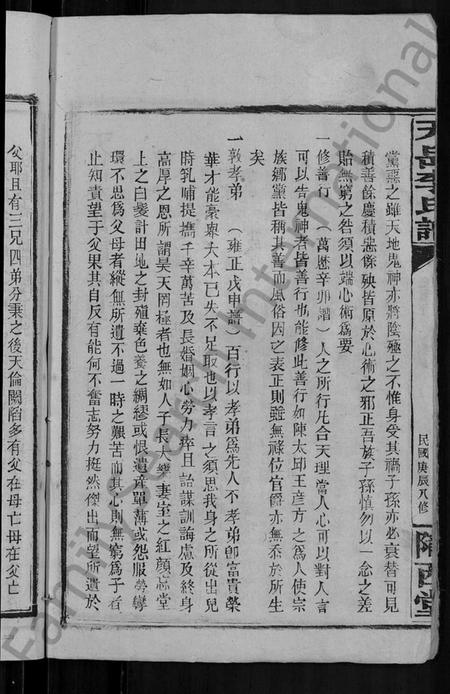 黨惡之雖天地鬼神亦將陰殛之不惟身受其禍子孫亦必衰替可見
積善餘慶積惡餘殃皆原於心術之邪正吾族子孫慎勿以一念之差
貽無窮之咎須以端心術爲要
一修善行（萬歷辛卯譜）人之所行凡合天理當人心可以對人言
可以告鬼神者皆善行也能修此善行如陳太邱王彦方之爲人使宗
族鄉黨皆稱其善而風俗因之表正則雖無祿位官爵亦無忝於所生
矣
一敦孝弟（雍正戊申譜）百行以孝弟爲先人不孝弟卽富貴榮
華才能豪奧大本已失不足取也以孝言之須思我身之所從出兒
時乳哺提攜千辛萬苦及長婚姻心勞力瘁且詒謀訓誨慮及終身
高厚之恩所謂昊天罔極者也無如人子長大變妻室之紅顔忘堂
上之白髮計田地之封殖棄色養之綢繆或恨遺產單薄或怨服勞
環不思爲父母者縱無所遺不過一時之艱苦而其心則無窮爲子者
止知責望于父果其自反有能何不奮志努力挺然傑出而望所遺於
父耶且有三兄四弟分爨之後天倫闊陷多有父在母亡母在父亡
天岳李氏譜
民國庚辰八修
隴西堂
Family Search International